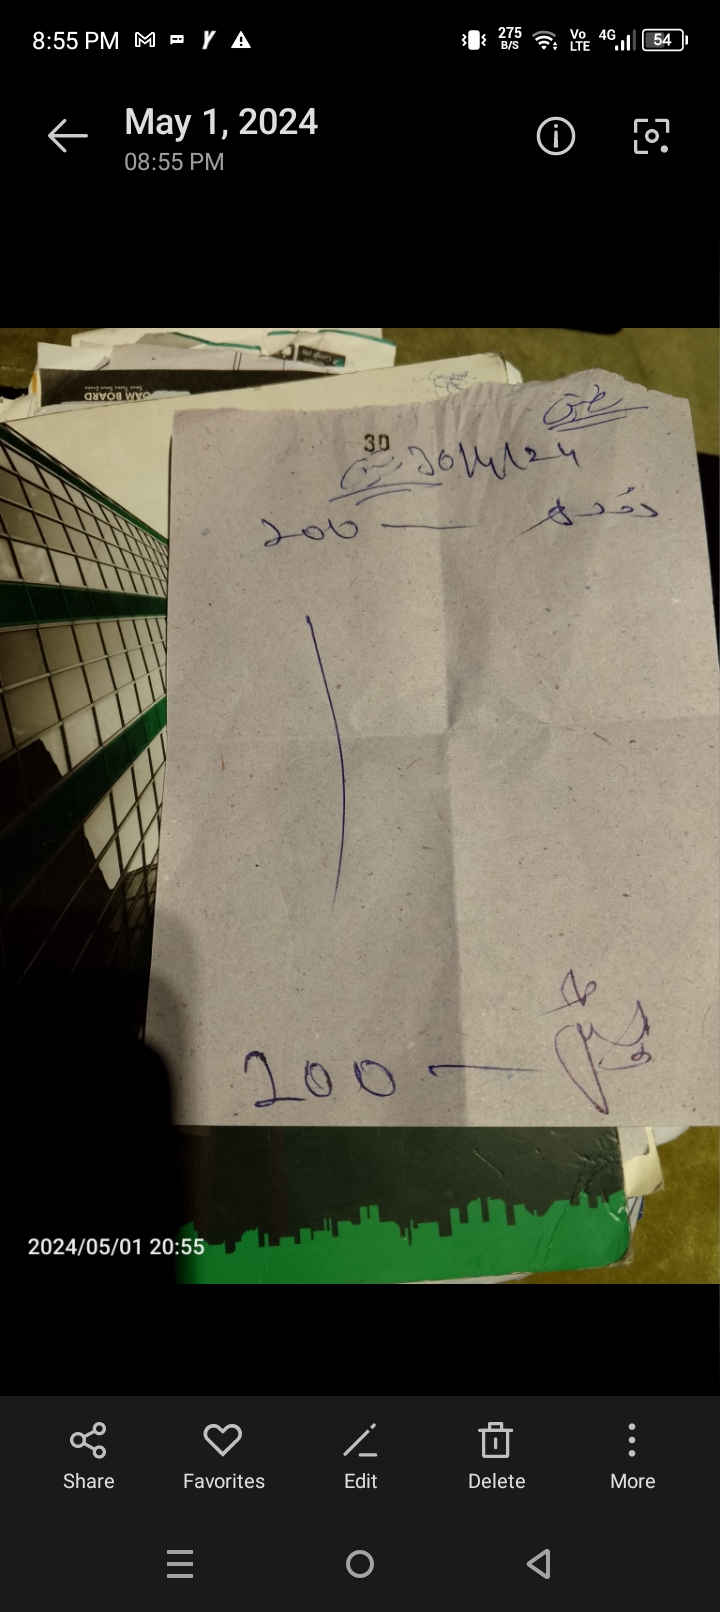 8:55 PM
275 B/S
Vo LTE
4G
54
May 1, 2024
08:55 PM
Google
OAM BOARD
30
30/4/24
200 — نقدی
200 —
2024/05/01 20:55
Share
Favorites
Edit
Delete
More